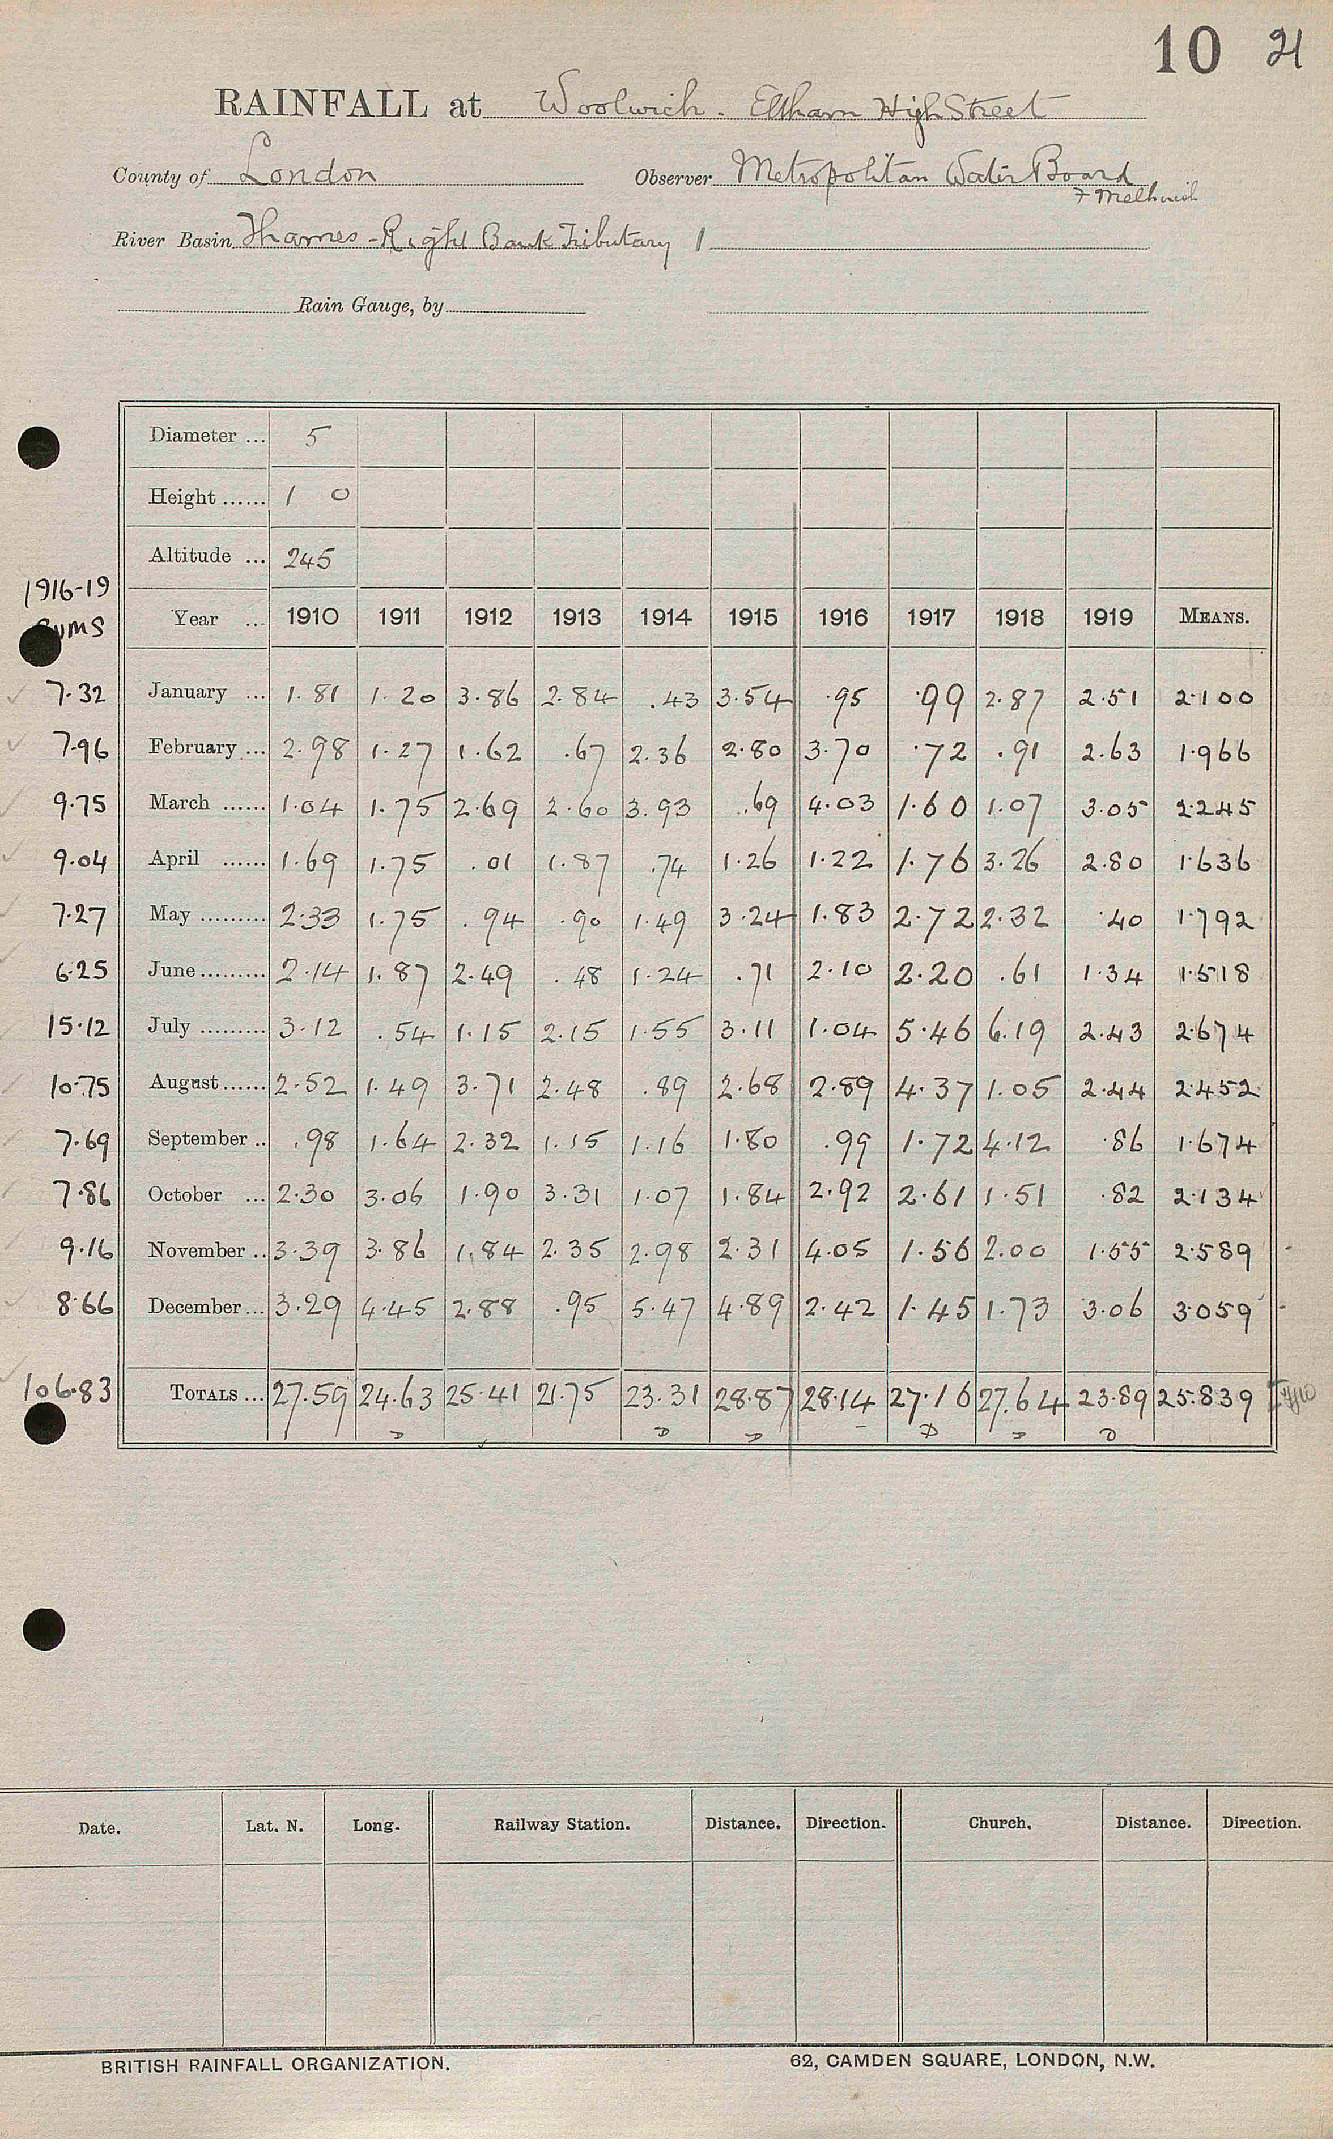 10 21
RAINFALL at Woolwich. Eltham High Street
County of London Observer Metropolitan Water Board
River Basin Thames - Right Bank Tributary 1
Rain Gauge, by
Diameter ... 5
Height ...... 1 0
Altitude ... 245
1916-19
Sums
Year ... 1910 1911 1912 1913 1914 1915 1916 1917 1918 1919 MEANS.
7.32 January ... 1.81 1.20 3.86 2.84 .43 3.54 .95 .99 2.87 2.51 2.100
7.96 February ... 2.98 1.27 1.62 .67 2.36 2.80 3.70 .72 .91 2.63 1.966
9.75 March ...... 1.04 1.75 2.69 2.60 3.93 .69 4.03 1.60 1.07 3.05 2.245
9.04 April ...... 1.69 1.75 .01 1.87 .74 1.26 1.22 1.76 3.26 2.80 1.636
7.27 May ......... 2.33 1.75 .94 .90 1.49 3.24 1.83 2.72 2.32 .40 1.792
6.25 June ......... 2.14 1.87 2.49 .48 1.24 .71 2.10 2.20 .61 1.34 1.518
15.12 July ......... 3.12 .54 1.15 2.15 1.55 3.11 1.04 5.46 6.19 2.43 2.674
10.75 August ...... 2.52 1.49 3.71 2.48 .89 2.68 2.89 4.37 1.05 2.44 2.452
7.69 September .. .98 1.64 2.32 1.15 1.16 1.80 .99 1.72 4.12 .86 1.674
7.86 October ... 2.30 3.06 1.90 3.31 1.07 1.84 2.92 2.61 1.51 .82 2.134
9.16 November .. 3.39 3.86 1.84 2.35 2.98 2.31 4.05 1.56 2.00 1.55 2.589
8.66 December ... 3.29 4.45 2.88 .95 5.47 4.89 2.42 1.45 1.73 3.06 3.059
106.83 TOTALS ... 27.59 24.63 25.41 21.75 23.31 28.87 28.14 27.16 27.64 23.89 25.839
D D D D D D
Date. Lat. N. Long. Railway Station. Distance. Direction. Church. Distance. Direction.
BRITISH RAINFALL ORGANIZATION. 62, CAMDEN SQUARE, LONDON, N.W.